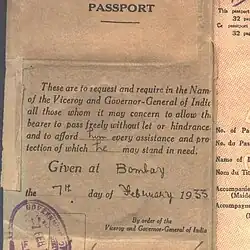 PASSPORT
This passport
32 pa
Ce passeport
32 p
These are to request and require in the Nam
of the Viceroy and Governor-General of India
all those whom it may concern to allow the
bearer to pass freely without let or hindrance
and to afford him every assistance and pro
tection of which he may stand in need.
Given at Bombay
the 7th day of February 1933
By order of the
Viceroy and Governor-General of India
No. of Pa
No. du Pa
Name of
Nom du Tit
Accompanied
(Maide
Accompagné